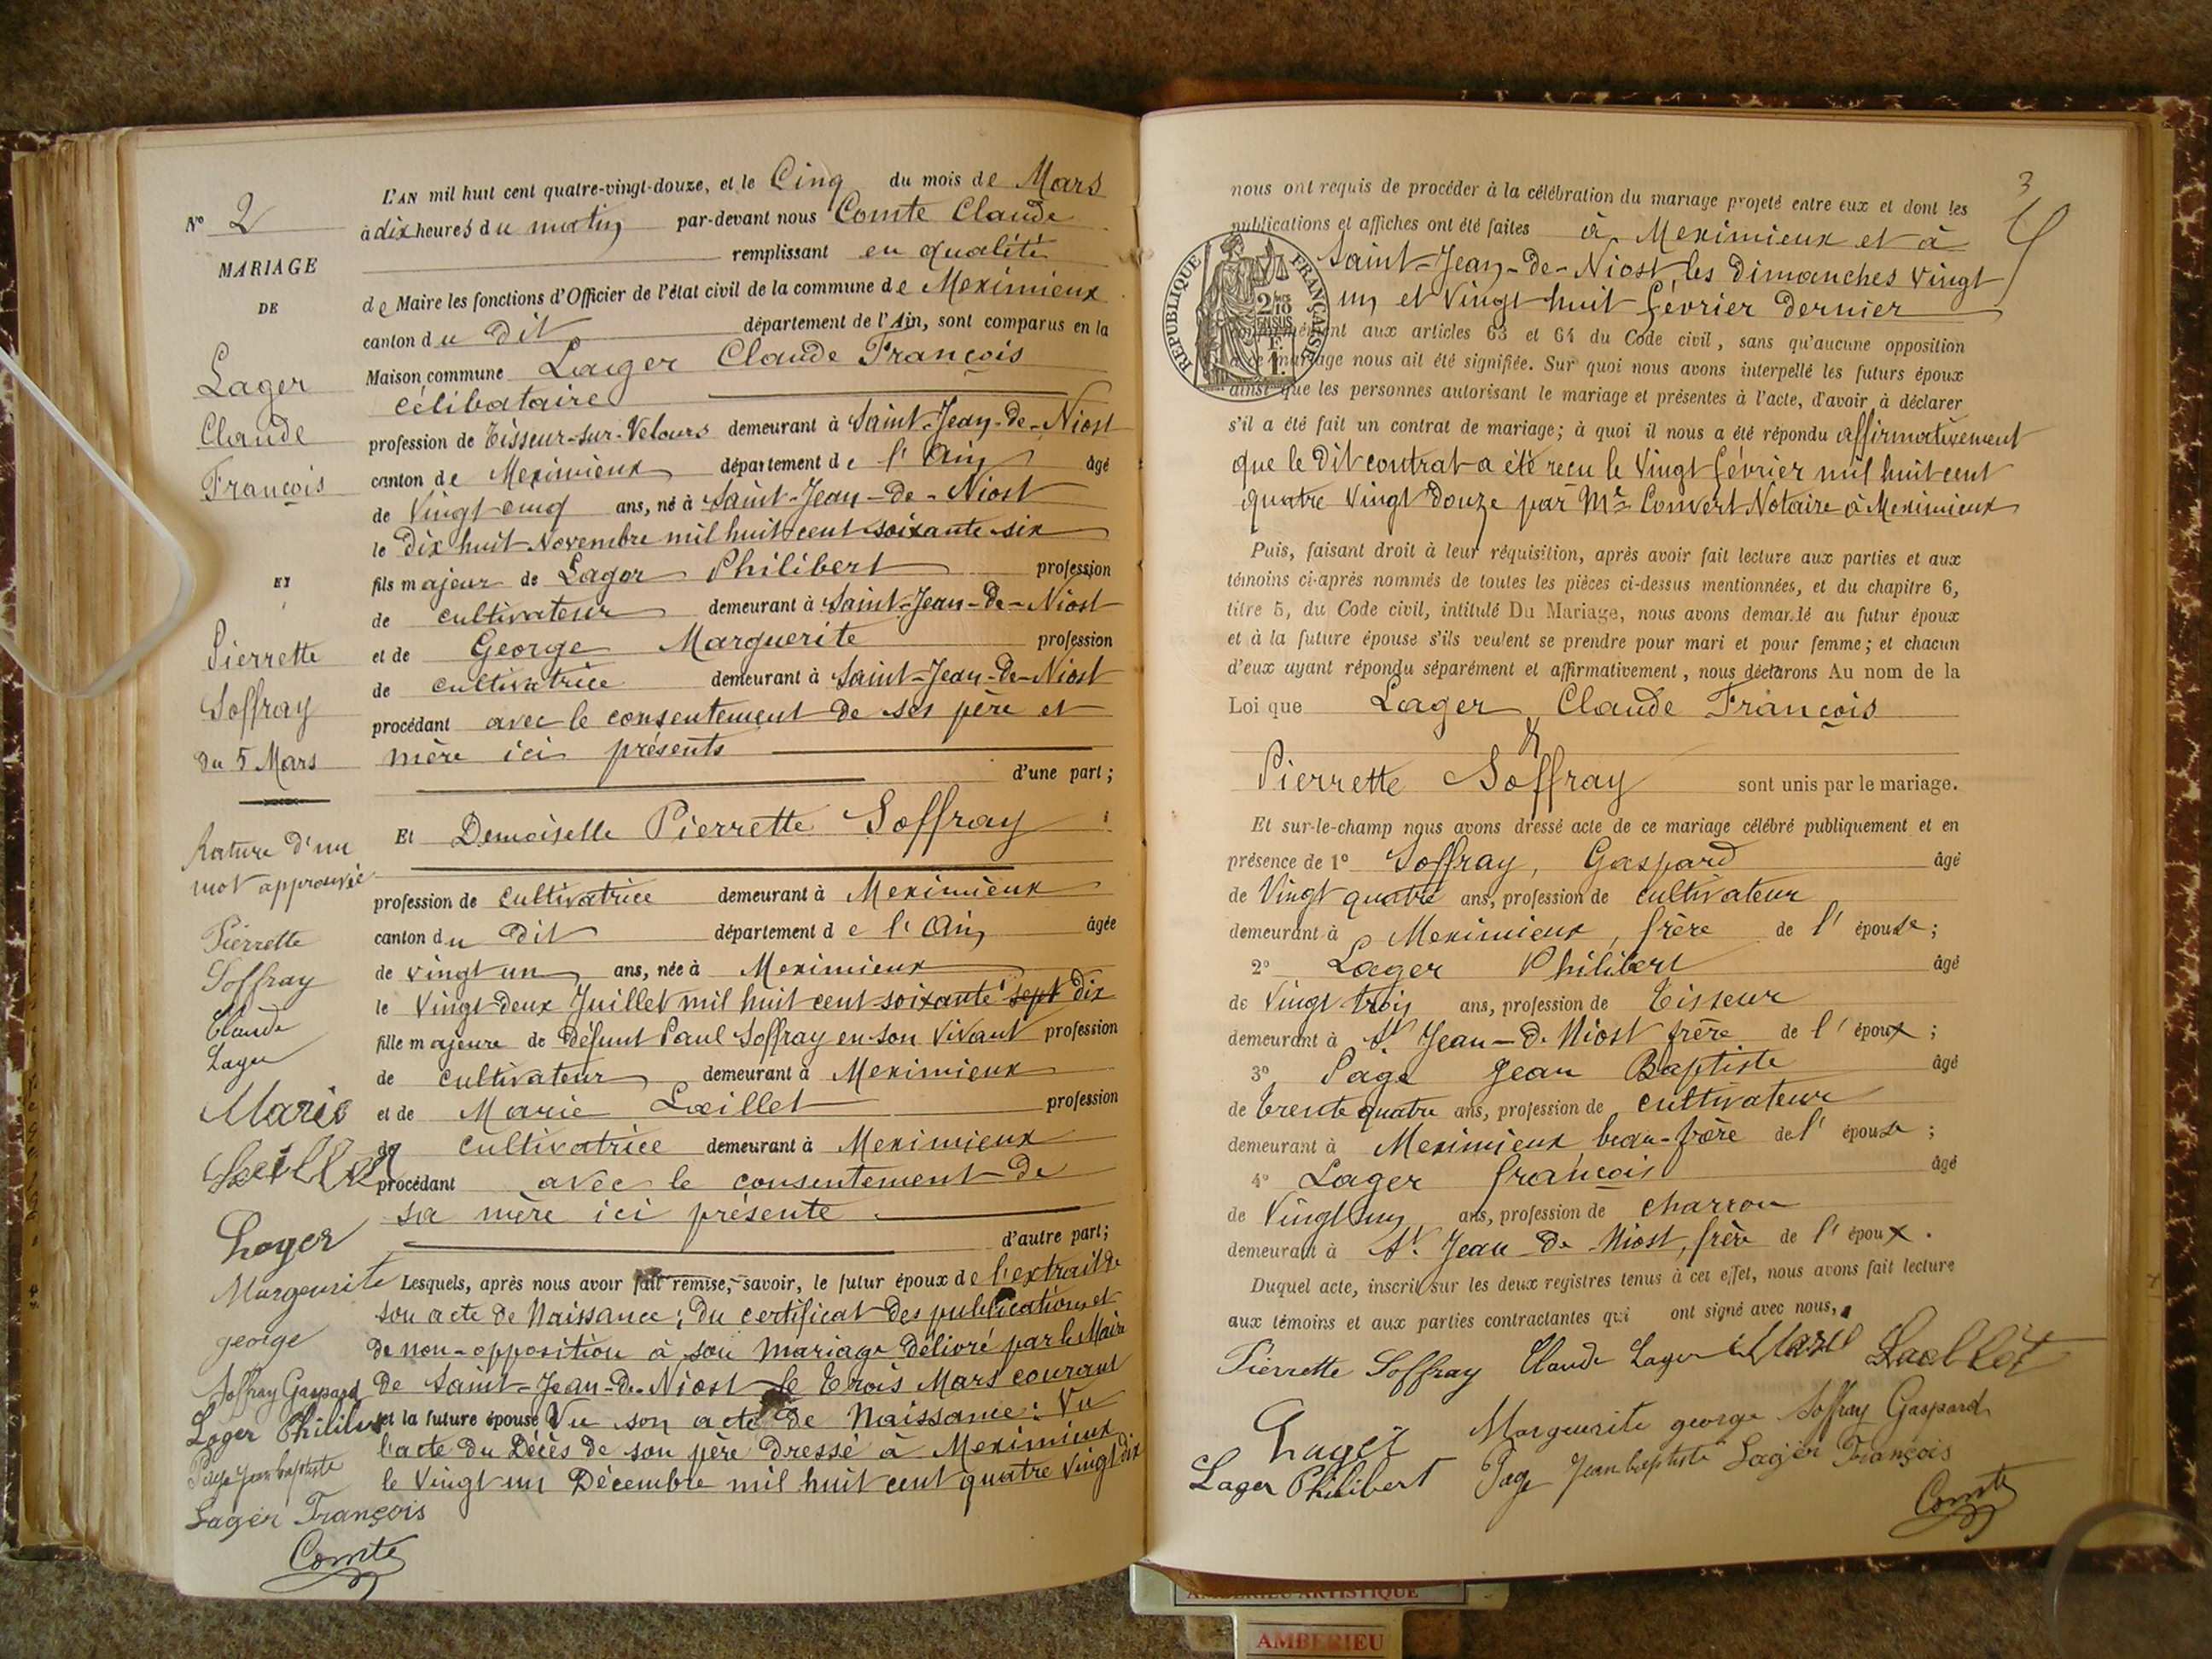 N° 2
MARIAGE
DE
Lager
Claude
François
ET
Pierrette
Soffray
du 5 Mars
Rature d'un
mot approuvée
Pierrette
Soffray
Claude
Lager
Marie
Lager
Marguerite
george
Soffray Gaspard
Lager Philibert
Page Jean baptiste
Lager François
Comte
L'AN mil huit cent quatre-vingt-douze, et le Cinq du mois de Mars
à dix heures du matin par-devant nous Comte Claude
remplissant en qualité
de Maire les fonctions d'Officier de l'état civil de la commune de Meximieux
canton du Dit département de l'Ain, sont comparus en la
Maison commune Lager Claude François
célibataire
profession de Tisseur-sur-Velours demeurant à Saint-Jean-de-Niost
canton de Meximieux département de l'Ain âgé
de Vingt cinq ans, né à Saint-Jean-de-Niost
le Dix huit Novembre mil huit cent soixante six
fils majeur de Lager Philibert profession
de cultivateur demeurant à Saint-Jean-de-Niost
et de George Marguerite profession
de cultivatrice demeurant à Saint-Jean-de-Niost
procédant avec le consentement de ses père et
mère ici présents
d'une part;
Et Demoiselle Pierrette Soffray
profession de cultivatrice demeurant à Meximieux
canton du Dit département de l'Ain âgée
de vingt un ans, née à Meximieux
le Vingt deux Juillet mil huit cent soixante sept dix
fille majeure de Défunt Paul Soffray en son Vivant profession
de cultivateur demeurant à Meximieux
et de Marie Laillet profession
de cultivatrice demeurant à Meximieux
procédant avec le consentement de
sa mère ici présente
d'autre part;
Lesquels, après nous avoir fait remise, savoir, le futur époux de l'extrait de
son acte de Naissance; du certificat des publications et
de non-opposition à son mariage délivré par le Maire
de Saint-Jean-de-Niost le Trois Mars courant
et la future épouse Vu son acte de Naissance: Vu
l'acte du Décès de son père dressé à Meximieux
le Vingt un Décembre mil huit cent quatre vingt dix
3
nous ont requis de procéder à la célébration du mariage projeté entre eux et dont les
publications et affiches ont été faites à Meximieux et à
Saint-Jean-de-Niost les Dimanches Vingt
un et Vingt huit février dernier
RÉPUBLIQUE FRANÇAISE
conformément aux articles 63 et 64 du Code civil, sans qu'aucune opposition
mariage nous ait été signifiée. Sur quoi nous avons interpellé les futurs époux
ainsi que les personnes autorisant le mariage et présentes à l'acte, d'avoir à déclarer
s'il a été fait un contrat de mariage; à quoi il nous a été répondu affirmativement
que le Dit contrat a été reçu le Vingt février mil huit cent
quatre Vingt Douze par Me Convert Notaire à Meximieux
Puis, faisant droit à leur réquisition, après avoir fait lecture aux parties et aux
témoins ci-après nommés de toutes les pièces ci-dessus mentionnées, et du chapitre 6,
titre 5, du Code civil, intitulé Du Mariage, nous avons demandé au futur époux
et à la future épouse s'ils veulent se prendre pour mari et pour femme; et chacun
d'eux ayant répondu séparément et affirmativement, nous déclarons Au nom de la
Loi que Lager Claude François
&
Pierrette Soffray sont unis par le mariage.
Et sur-le-champ nous avons dressé acte de ce mariage célébré publiquement et en
présence de 1° Soffray, Gaspard âgé
de Vingt quatre ans, profession de cultivateur
demeurant à Meximieux, frère de l'épouse;
2° Lager Philibert âgé
de Vingt trois ans, profession de Tisseur
demeurant à St Jean-de Niost frère de l'époux;
3° Page Jean Baptiste âgé
de trente quatre ans, profession de cultivateur
demeurant à Meximieux beau-frère de l'épouse;
4° Lager françois âgé
de Vingt un ans, profession de charron
demeurant à St. Jean de Niost, frère de l'époux.
Duquel acte, inscrit sur les deux registres tenus à cet effet, nous avons fait lecture
aux témoins et aux parties contractantes qui ont signé avec nous,
Pierrette Soffray Claude Lager Marie Laillet
Lager Marguerite george Soffray Gaspard
Lager Philibert Page Jean baptiste Lager François
Comte
AMBERIEU ARTISTIQUE
AMBERIEU